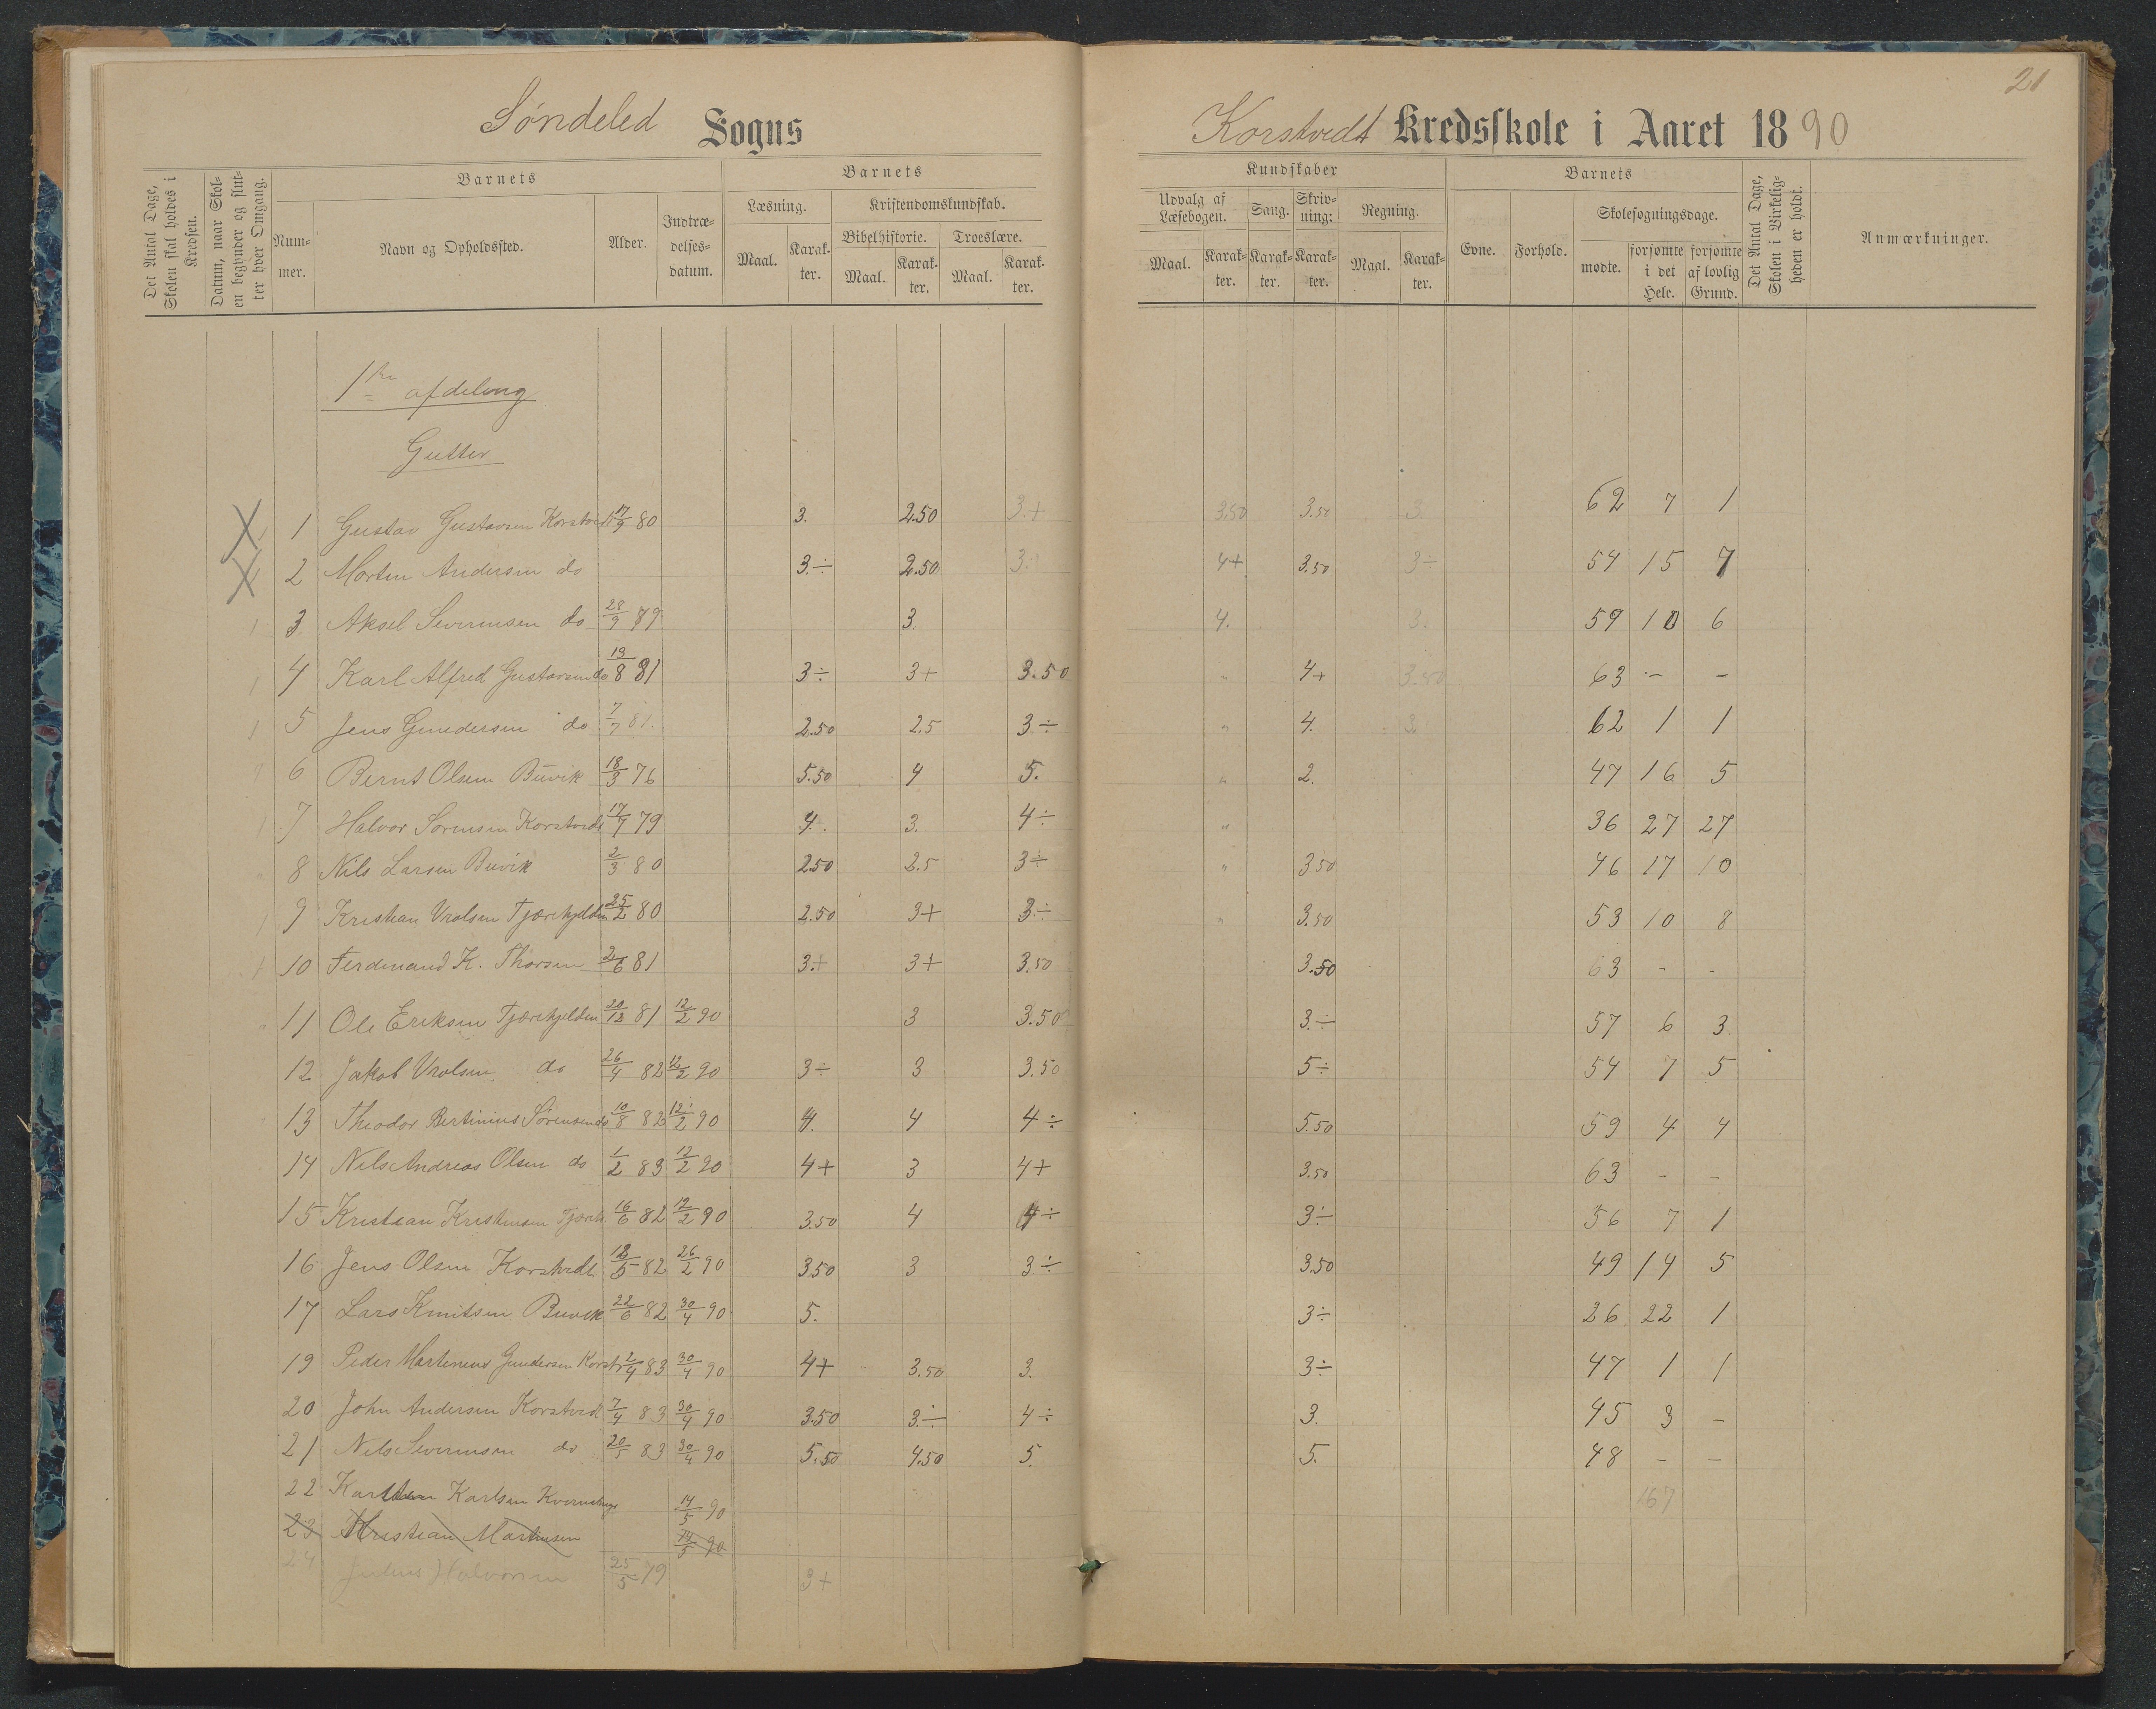 21
Søndeled Sogns
Korstvedt Kredsskole i Aaret 1890
Det Antal Dage, Skolen skal holdes i Kredsen.
Datum, naar Skolen begynder og slutter hver Omgang.
Barnets
Nummer.
Navn og Opholdssted.
Alder.
Indtrædelsesdatum.
Barnets
Læsning.
Maal.
Karakter.
Kristendomskundskab.
Bibelhistorie.
Maal.
Karakter.
Troeslære.
Maal.
Karakter.
Kundskaber
Udvalg af Læsebogen.
Maal.
Karakter.
Sang.
Karakter.
Skrivning:
Karakter.
Regning.
Maal.
Karakter.
Barnets
Evne.
Forhold.
Skolesøgningsdage.
mødte.
forsømte i det Hele.
forsømte af lovlig Grund.
Det Antal Dage, Skolen i Virkeligheden er holdt.
Anmærkninger.
1ste afdeling
Gutter
1 Gustav Gustavsen Korstvedt 17/9 80 3. 2.50 3.+ 3.50 3.50 3. 62 7 1
2 Morten Andersen do 3.÷ 2.50 3. 4+ 3.50 3÷ 54 15 7
3 Aksel Severinsen do 28/9 79 3 4. 3. 59 10 6
4 Karl Alfred Gustavsen do 19/8 81 3÷ 3+ 3.50 " 4+ 3.50 63 - -
5 Jens Gundersen do 7/7 81. 2.50 2.5 3÷ " 4. 3 62 1 1
6 Bernt Olsen Buvik 18/3 76 5.50 4 5. " 2. 47 16 5
7 Halvor Sørensen Korstvedt 17/7 79 4. 3. 4÷ " 36 27 27
8 Nils Larsen Buvik 2/3 80 2.50 2.5 3÷ " 3.50 46 17 10
9 Kristian Vrolsen Tjærekjelden 25/2 80 2.50 3+ 3÷ " 3.50 53 10 8
10 Ferdinand K. Thorsen 2/6 81 3.+ 3+ 3.50 3.50 63 - -
11 Ole Eriksen Tjærekjelden 20/12 81 12/2 90 3 3.50 3.÷ 57 6 3
12 Jakob Vrolsen do 26/4 82 12/2 90 3÷ 3 3.50 5÷ 54 7 5
13 Theodor Bertinius Sørensen do 10/8 82 12/2 90 4. 4 4÷ 5.50 59 4 4
14 Nils Andreas Olsen do 1/2 83 12/2 90 4+ 3 4+ 3.50 63 - -
15 Kristian Kristensen Tjærek. 16/6 82 12/2 90 3.50 4 4÷ 3÷ 56 7 1
16 Jens Olsen Korstvedt 12/5 82 26/2 90 3.50 3 3÷ 3.50 49 14 5
17 Lars Knutsen Buvik 22/6 82 30/4 90. 5. 3÷ 26 22 1
19 Peder Martinius Gundersen Korstv 2/4 83 30/4 90 4+ 3.50 3. 3÷ 47 1 1
20 John Andersen Korstvedt 7/4 83 30/4 90 3.50 3÷ 4÷ 3. 45 3 -
21 Nils Severinsen do 20/5 83 30/4 90 5.50 4.50 5. 5. 48 - -
22 Karlsen 14/5 90 167
23 Kristian Martinsen 14/5 90
24 Julius Halvorsen 25/5 79 3+